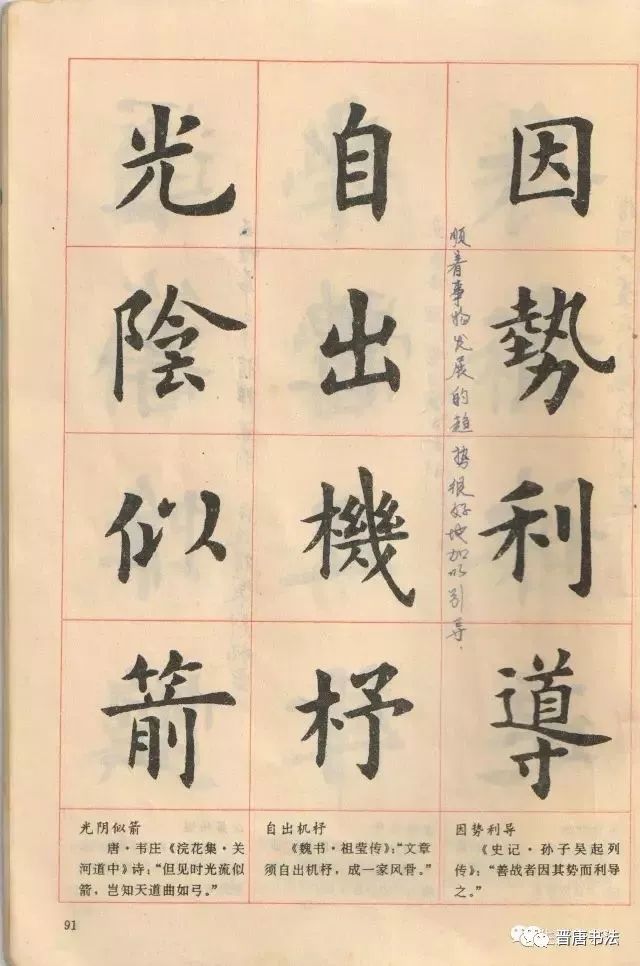 因勢利導
順着事物发展的趋势很好地加以引导.
自出機杼
光陰似箭
因势利导
《史记·孙子吴起列
传》："善战者因其势而利导
之。"
自出机杼
《魏书·祖莹传》："文章
须自出机杼，成一家风骨。"
光阴似箭
唐·韦庄《浣花集·关
河道中》诗："但见时光流似
箭，岂知天道曲如弓。"
91
晋唐书法